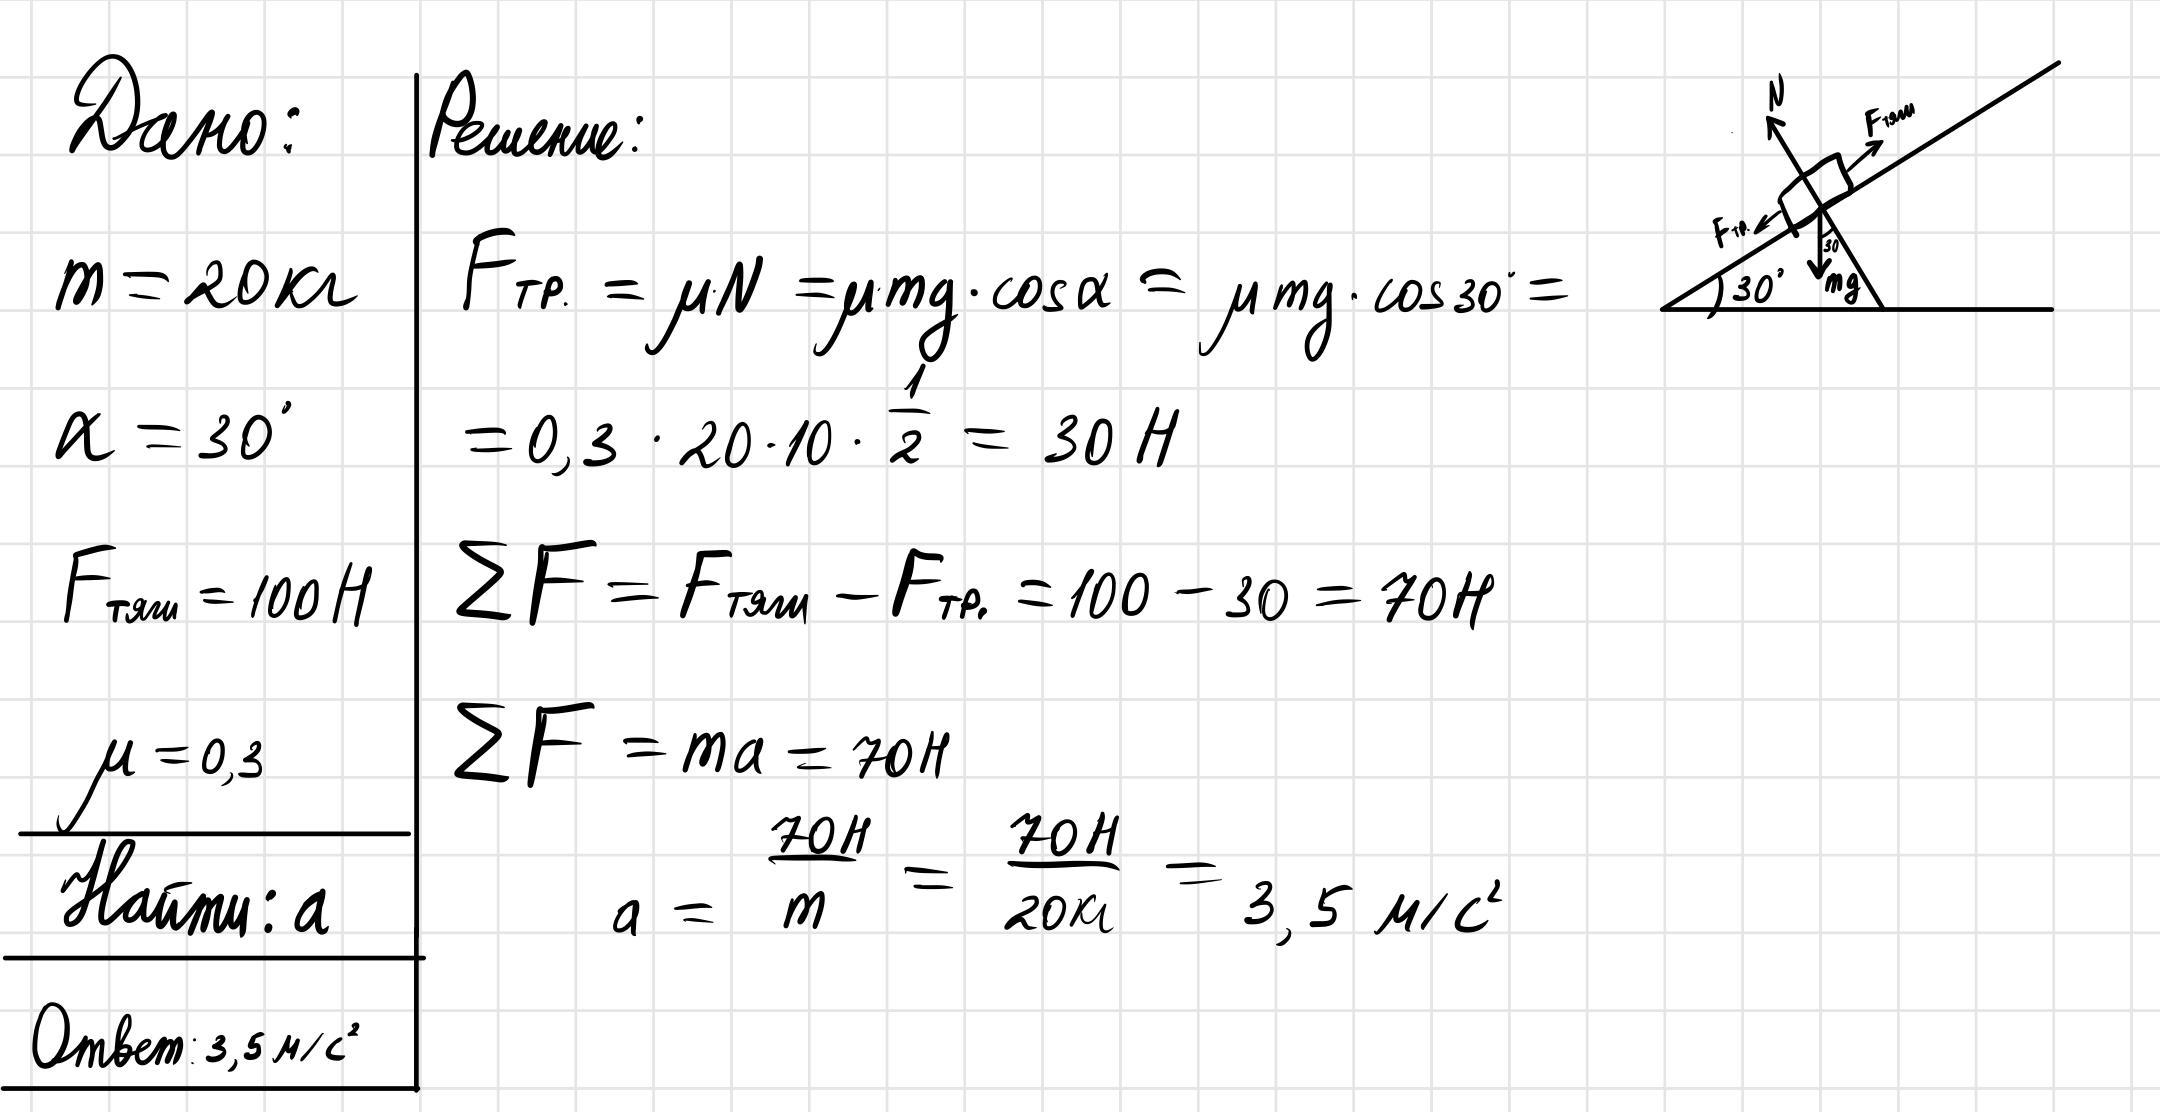 Дано:
m = 20кг
α = 30°
Fтяги = 100Н
μ = 0,3
Найти: a
Ответ: 3,5 м/с²
Решение:
Fтр. = μ·N = μ·mg·cosα = μmg·cos30° =
= 0,3 · 20·10 · 1/2 = 30 Н
ΣF = Fтяги − Fтр. = 100 − 30 = 70Н
ΣF = ma = 70Н
a = 70Н/m = 70Н/20кг = 3,5 м/с²
N
Fтяги
Fтр.
30
30°
mg